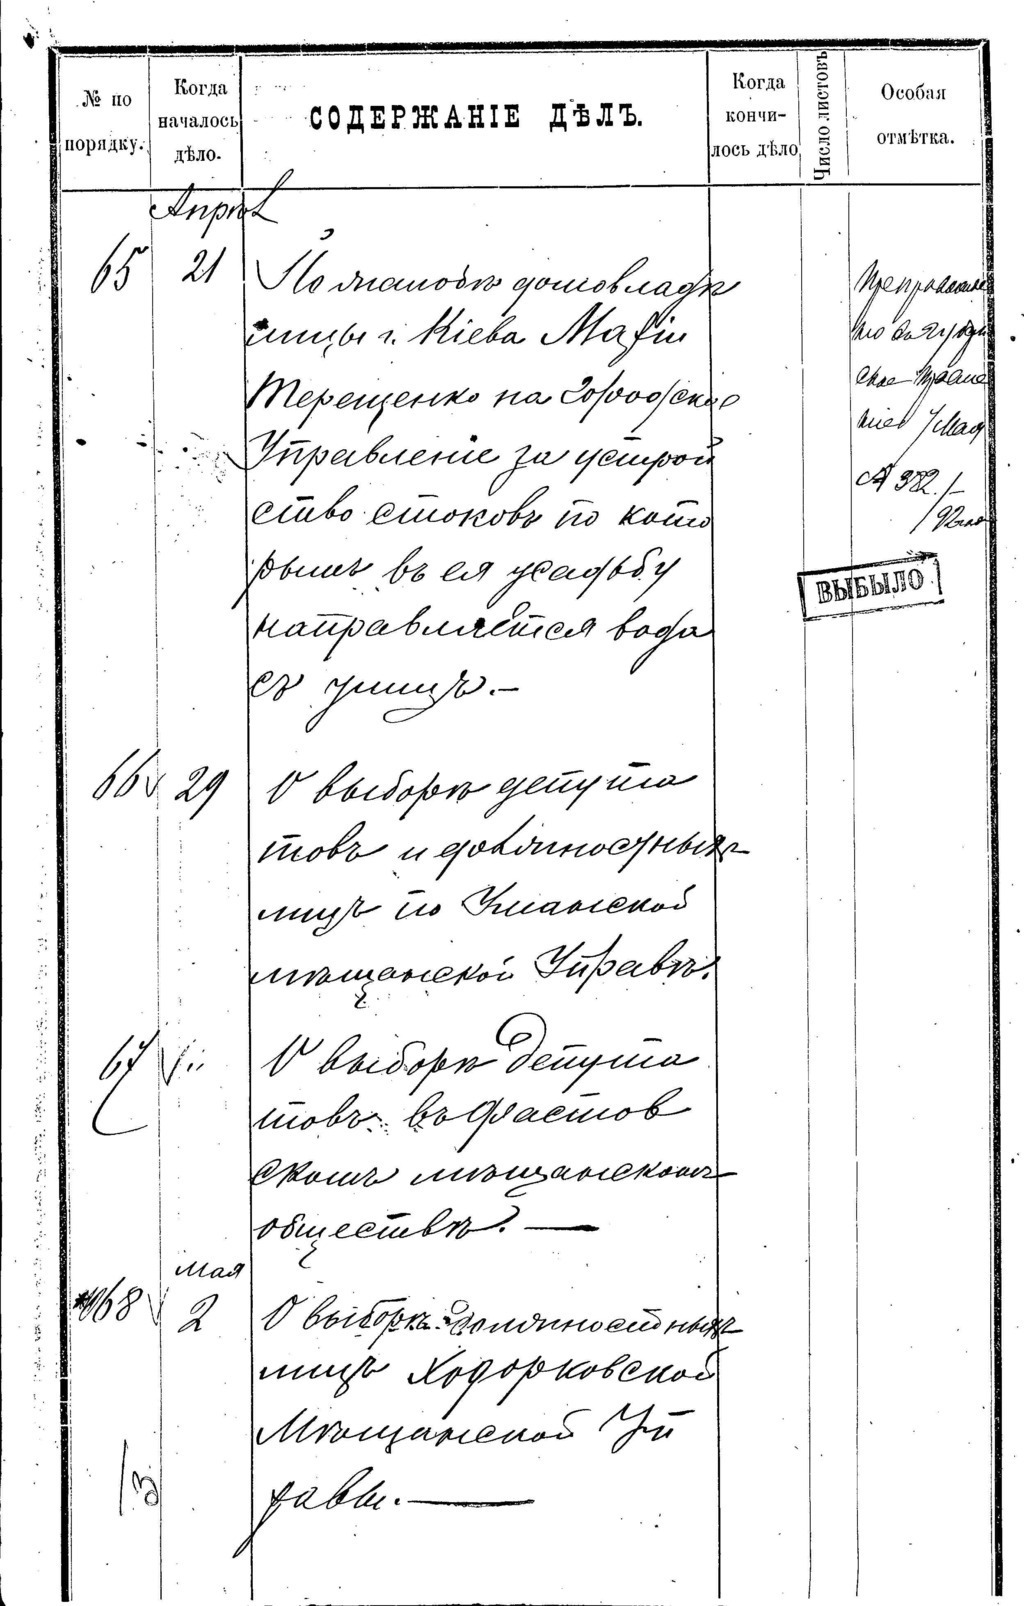 № по порядку.
Когда началось дѣло.
СОДЕРЖАНІЕ ДѢЛЪ.
Когда кончилось дѣло
Число листовъ
Особая отмѣтка.
Апрѣл
65 21 По жалобѣ домовладѣ
лицы г. Кіева Маріи
Терещенко на Городское
Управленіе за устрой
ство стоковъ по кото
рымъ въ ея усадьбу
направляется вода
съ улицъ.—
Препровожде
но въ Губерн
ское Правле
ніе 7 Мая
№ 382.
ВЫБЫЛО
66 29 О выборѣ депута
товъ и должностныхъ
лицъ по Уманской
мѣщанской Управѣ.
67 О выборѣ депута
товъ въ Фастов
скомъ мѣщанскомъ
обществѣ.—
Мая
68 2 О выборѣ должностныхъ
лицъ Ходорковской
Мѣщанской Уп
равы.—